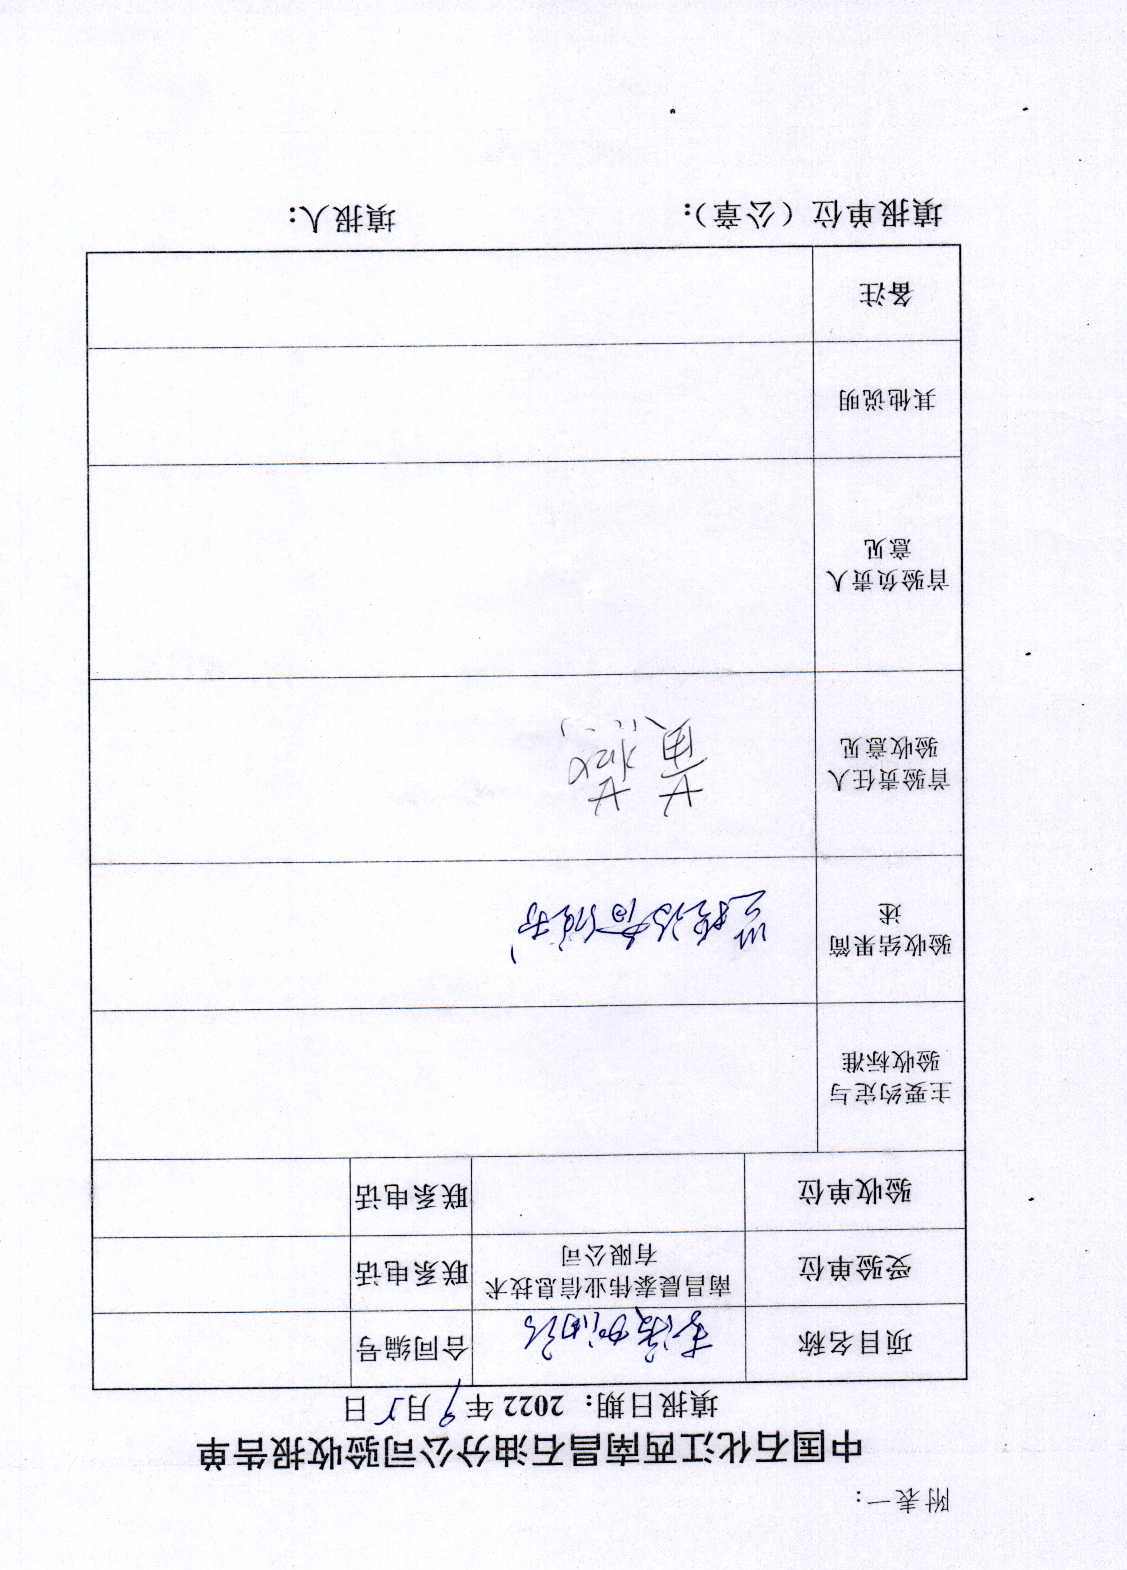 附表一：
中国石化江西南昌石油分公司验收报告单
填报日期：2022年9月5日
项目名称 加油站 合同编号
受验单位 南昌晨泰伟业信息技术有限公司 联系电话
验收单位 联系电话
主要约定与
验收标准
验收结果简
述
监控设备维护
首验责任人
验收意见
黄
首验负责人
意见
其他说明
备注
填报单位（公章）： 填报人：